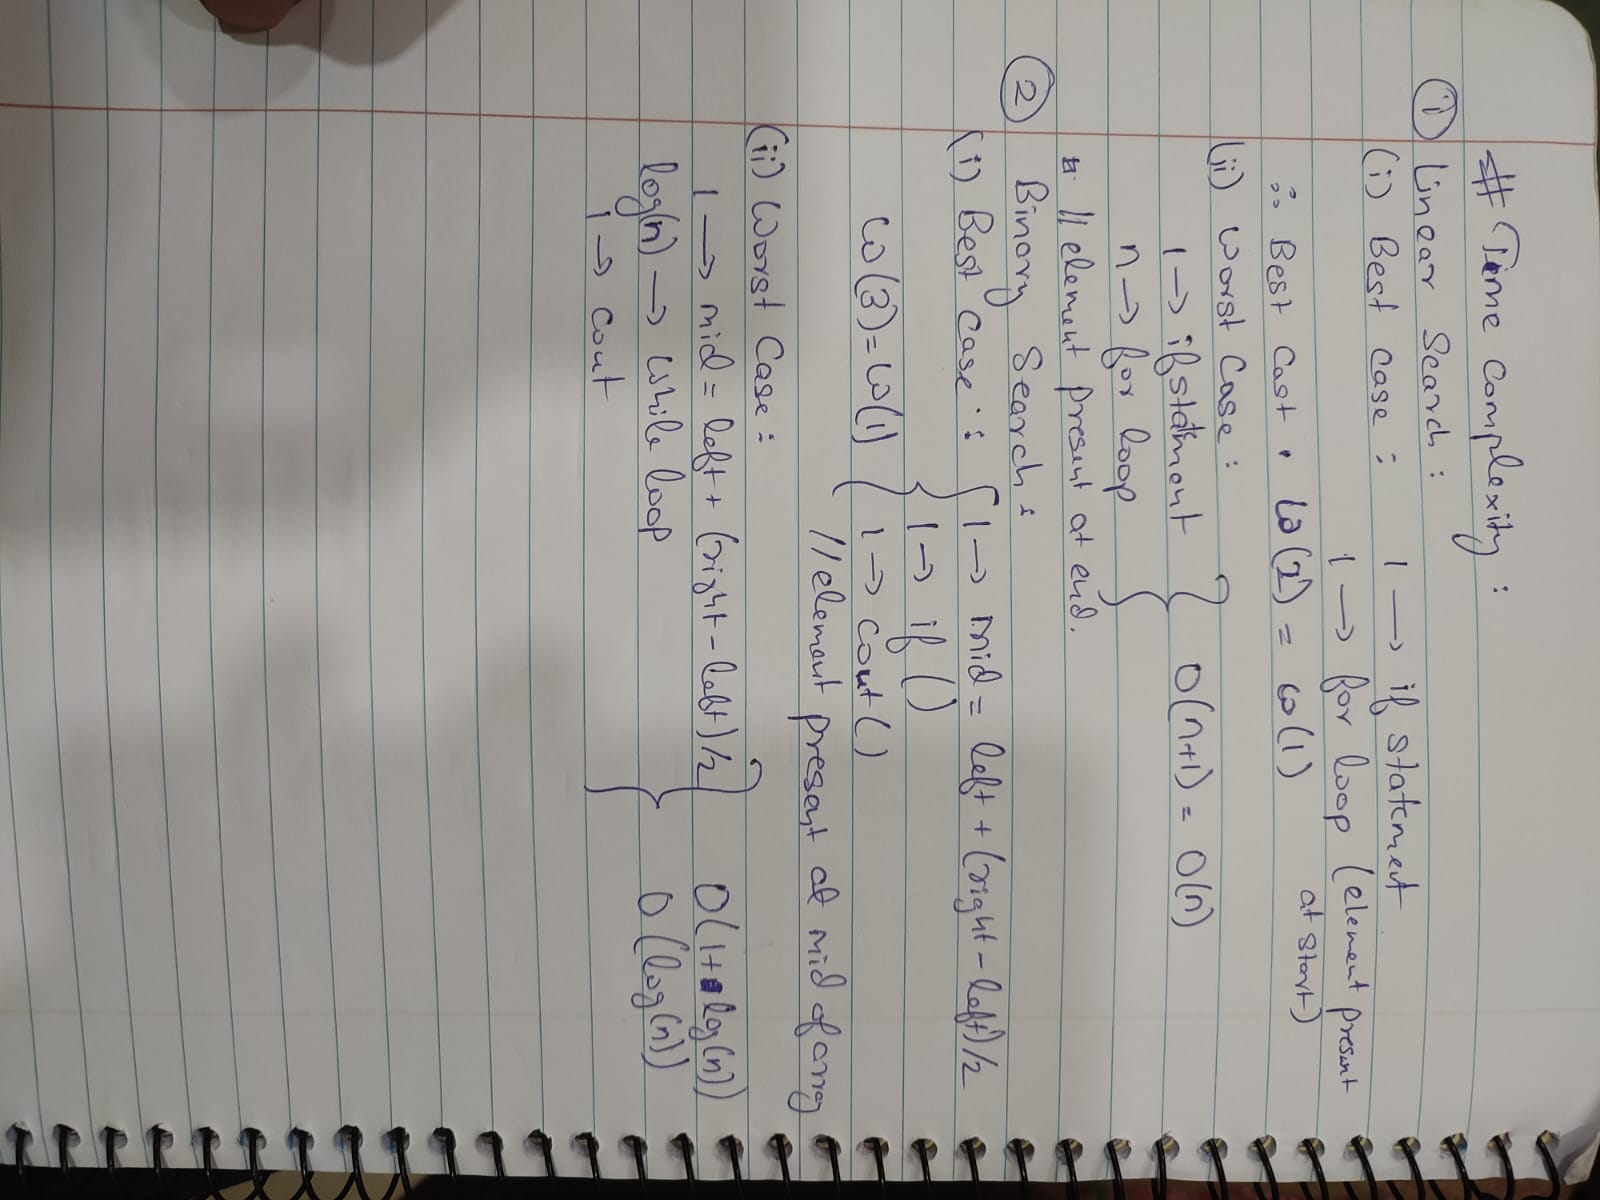 # Time Complexity:
① Linear Search:
(i) Best Case: 1 → if statement
1 → for loop (element present at start)
∴ Best Cast • ω(2) = ω(1)
(ii) Worst Case:
1 → if statment } O(n+1) = O(n)
n → for loop
// element present at end.
② Binary Search:
(i) Best Case: { 1 → mid = left + (right - left)/2
1 → if ()
ω(3) = ω(1) 1 → cout()
// element present at mid of array
(ii) Worst Case:
1 → mid = left + (right - left)/2 } O(1+ log(n))
log(n) → while loop O(log(n))
1 → cout